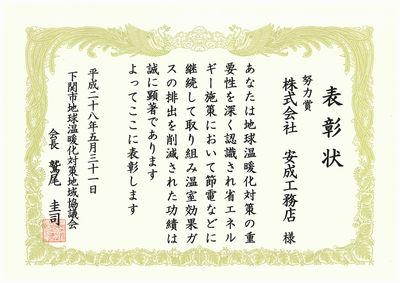 表彰状
努力賞
株式会社 安成工務店 様
あなたは地球温暖化対策の重
要性を深く認識され省エネル
ギー施策において節電などに
継続して取り組み温室効果ガ
スの排出を削減された功績は
誠に顕著であります
よってここに表彰します
平成二十八年五月三十一日
下関市地球温暖化対策地域協議会
会長 鷲尾 圭司